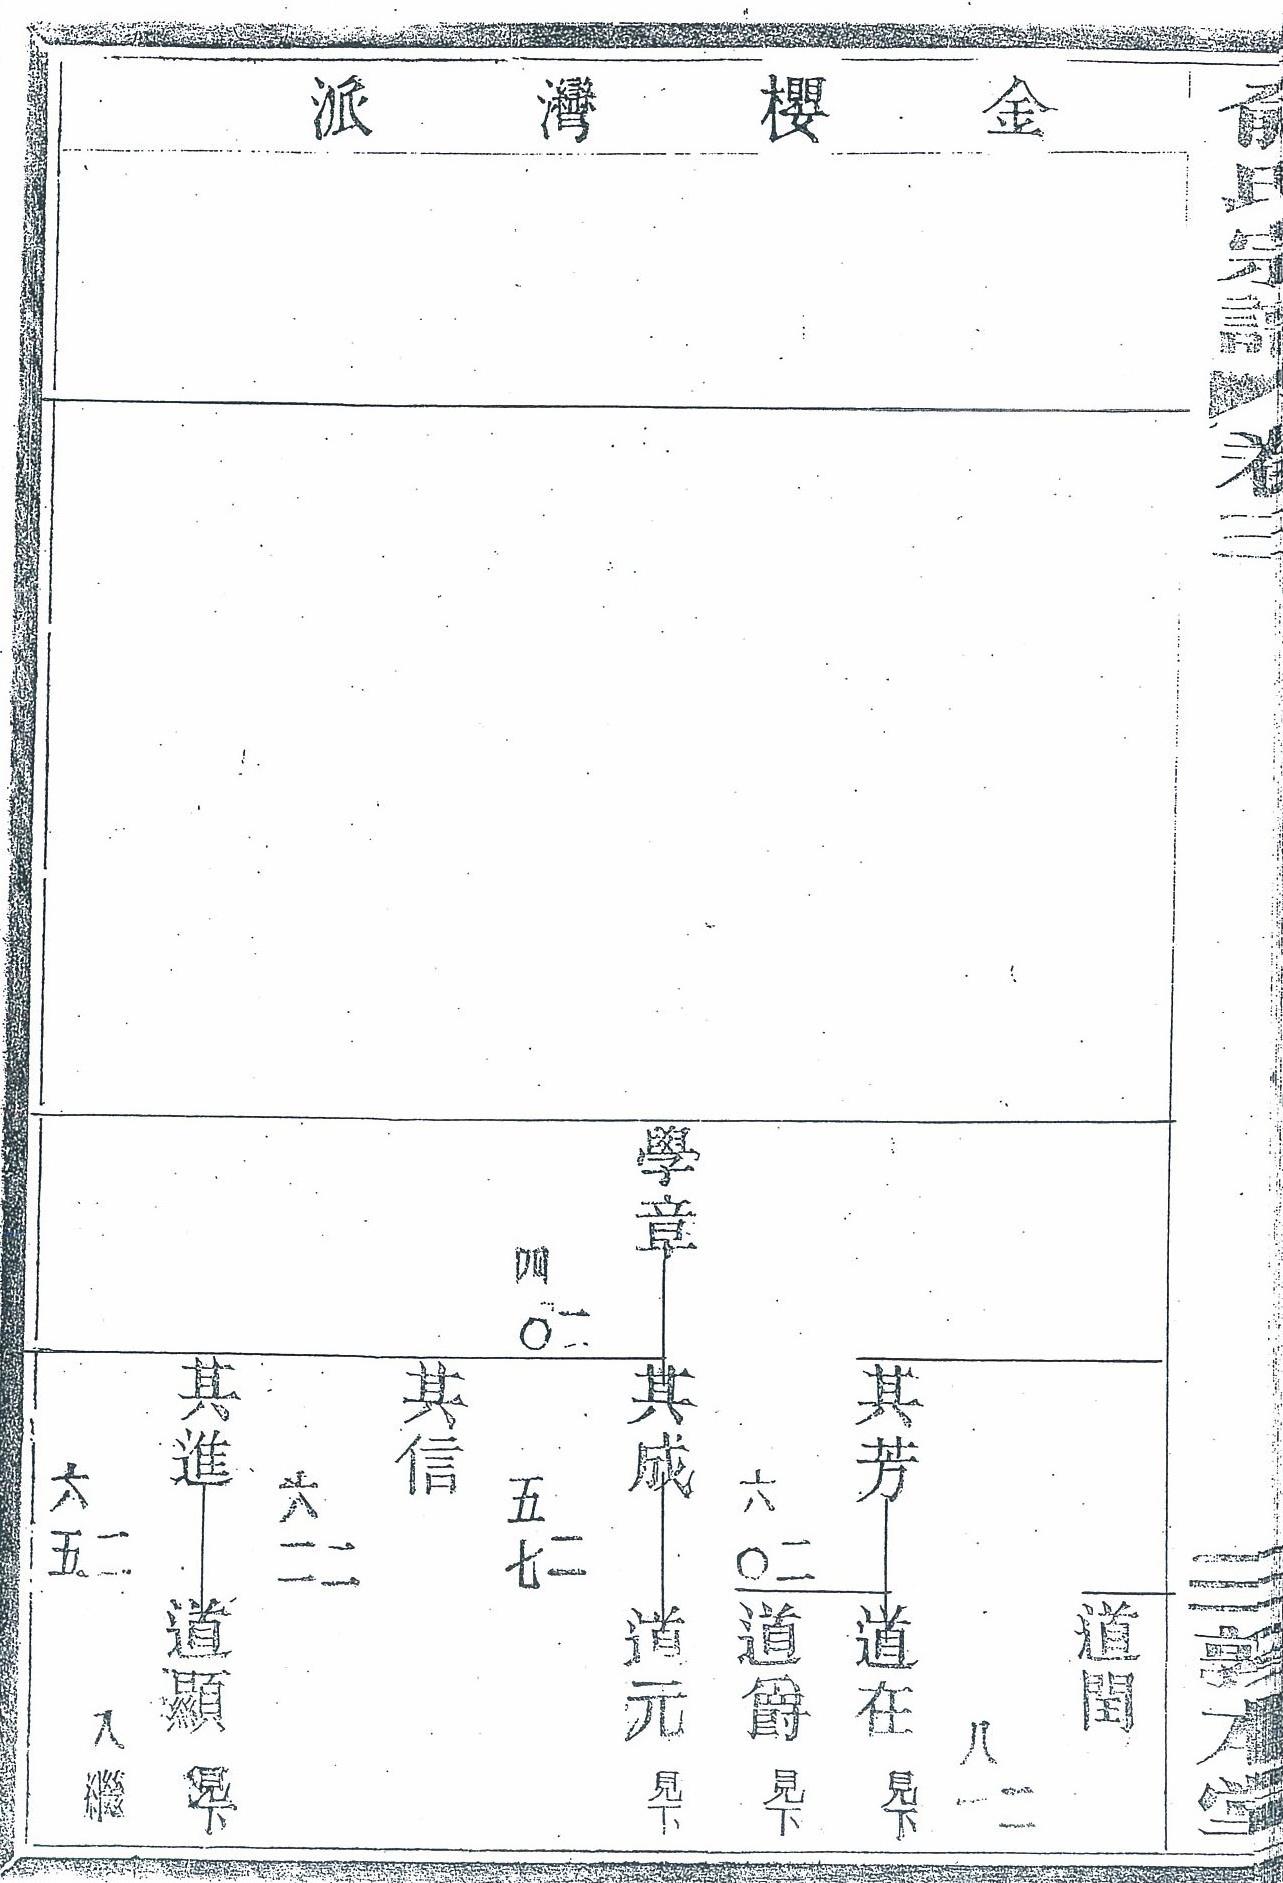 俞氏宗譜
卷三
敦本堂
金櫻灣派
學章
二四〇
其芳
二六〇
其成
二五七
其信
二六二
其進
二六五
道閏
二八一
道在
見下
道爵
見下
道元
見下
道顯
見下
入繼